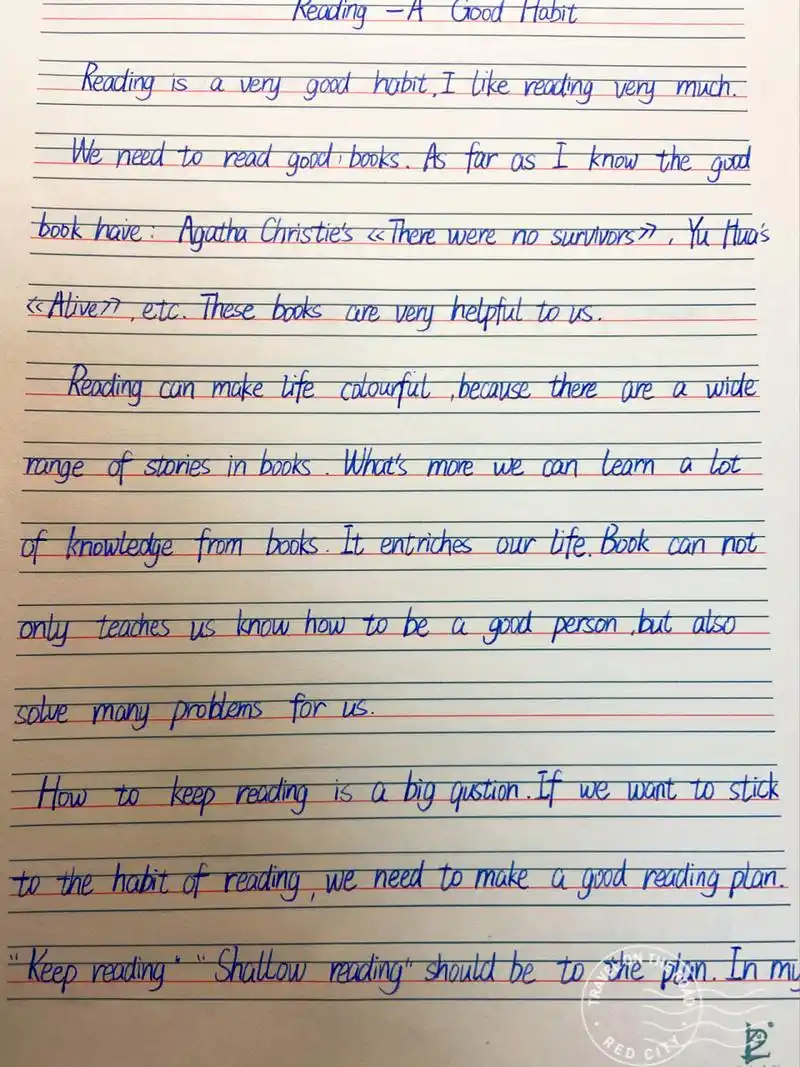 Reading — A Good Habit
Reading is a very good habit, I like reading very much.
We need to read good, books. As far as I know the good
book have: Agatha Christie's «There were no survivors», Yu Hua's
«Alive», etc. These books are very helpful to us.
Reading can make life colourful, because there are a wide
range of stories in books. What's more we can learn a lot
of knowledge from books. It entriches our life. Book can not
only teaches us know how to be a good person, but also
solve many problems for us.
How to keep reading is a big qustion. If we want to stick
to the habit of reading, we need to make a good reading plan.
"Keep reading" "Shallow reading" should be to the plan. In my
TRAVEL ON THE ROAD
RED CITY